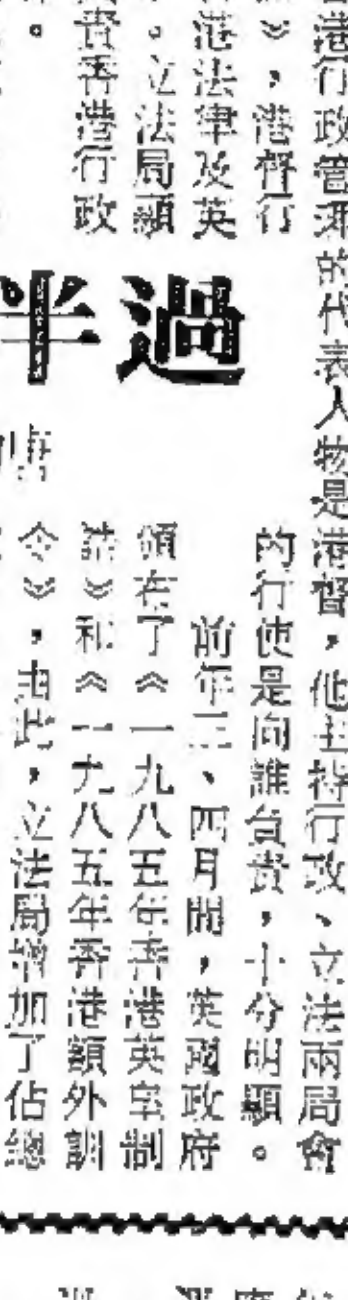 港行政管理的代表人物是港督，他主持行政、立法兩局會
》，港督行
港法律及英
。立法局顯
責香港行政
。
過半
唐
的行使是向誰負責，十分明顯。
前年三、四月間，英國政府
頒布了《一九八五年香港英皇制
誥》和《一九八五年香港額外訓
令》，由此，立法局增加了佔總